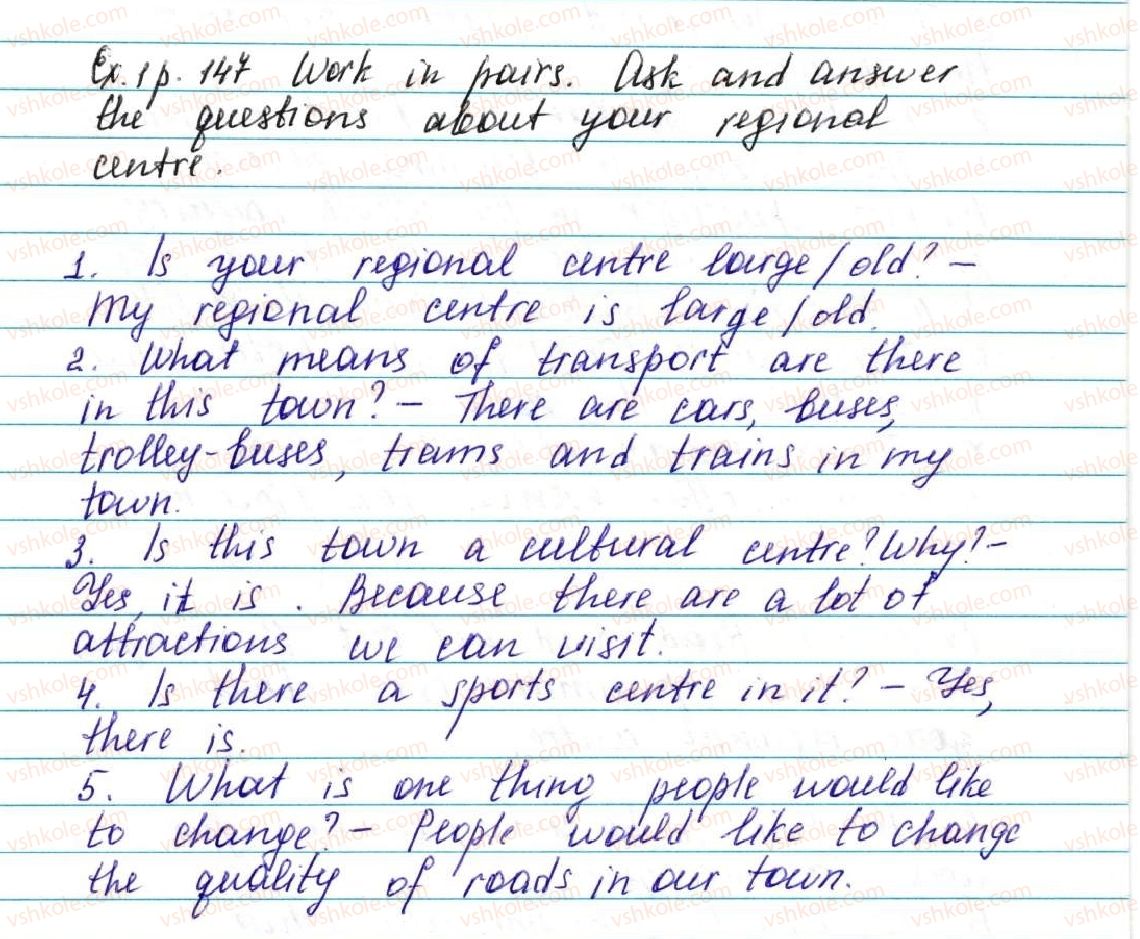 Ex. 1 p. 147 Work in pairs. Ask and answer
the questions about your regional
centre.
1. Is your regional centre large/old? –
My regional centre is large/old.
2. What means of transport are there
in this town? – There are cars, buses,
trolley-buses, trams and trains in my
town.
3. Is this town a cultural centre? Why? –
Yes, it is. Because there are a lot of
attractions we can visit.
4. Is there a sports centre in it? – Yes,
there is.
5. What is one thing people would like
to change? – People would like to change
the quality of roads in our town.